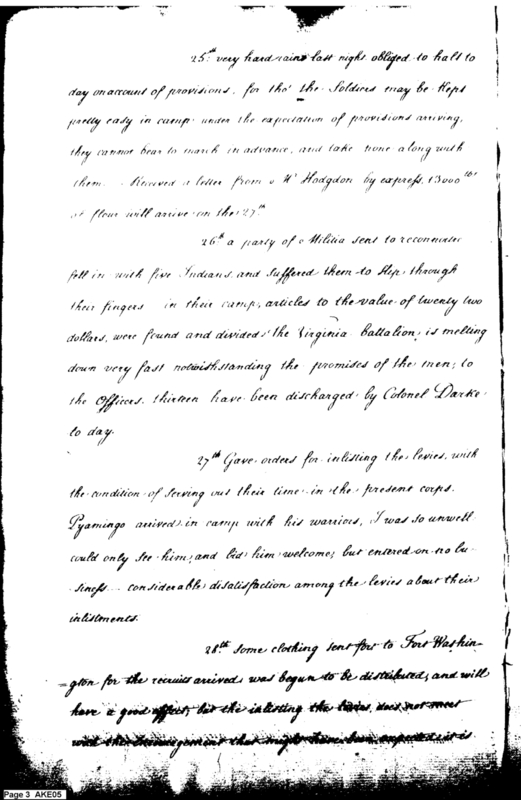 25th very hard rains last night obliged to halt to
day on account of provisions, for tho' the Soldiers may be kept
pretty easy in camp under the expectation of provisions arriving,
they cannot bear to march in advance, and take none along with
them. Received a letter from Mr Hodgdon by express, 13000 lbs
of flour will arrive on the 27th
26th a party of Militia sent to reconnoitre
fell in with five Indians and suffered them to slip through
their fingers in their camp, articles to the value of twenty two
dollars, were found and divided, the Virginia battalion, is melting
down very fast notwithstanding the promises of the men, to
the Officers. thirteen have been discharged by Colonel Darke
to day.
27th Gave orders for inlisting the levies, with
the condition of serving out their time in the present corps.
Pyamingo arrived in camp with his warriors, I was so unwell
could only see him, and bid him welcome, but entered on no bu-
siness considerable disatisfaction among the levies about their
inlistments.
28th some clothing sent for to Fort Washin-
=gton for the recruits arrived, was begun to be distributed, and will
have a good effect, but the inlisting the levies, does not meet
with the encouragement that might have been expected, it is
Page 3 AKE05